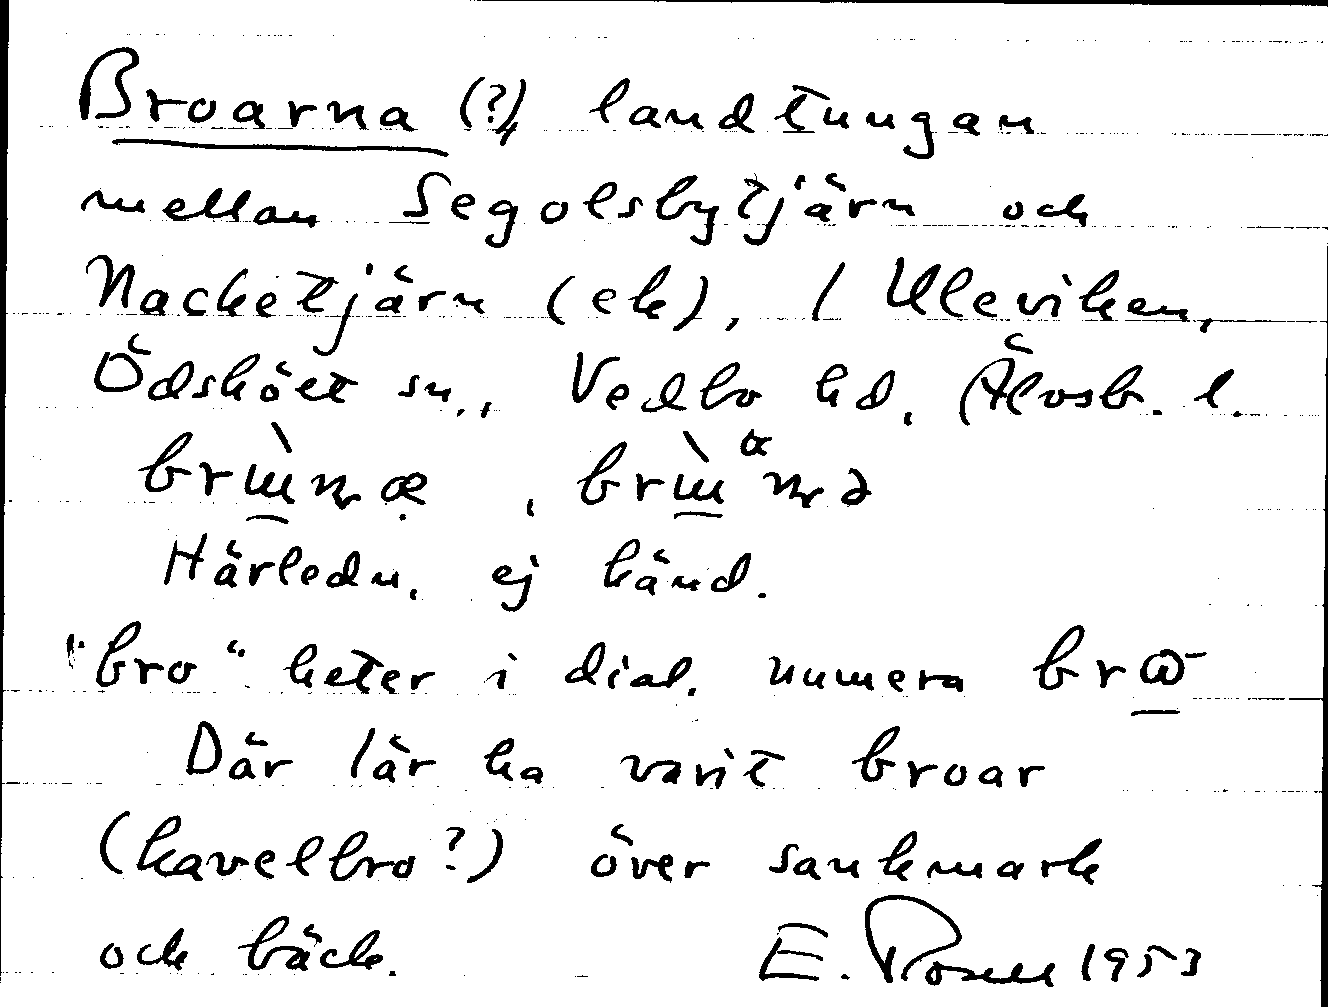 Broarna (?), landtungan
mellan Segolsbytjärn och
Nacketjärn (ek), / Uleviken,
Ödskölt sn., Vedbo hd, Älvsb. l.
Härledn. ej känd.
"bro" heter i dial. numera
Där lär ha varit broar
(kavelbro?) över sankmark
och bäck. E. Rosell 1953